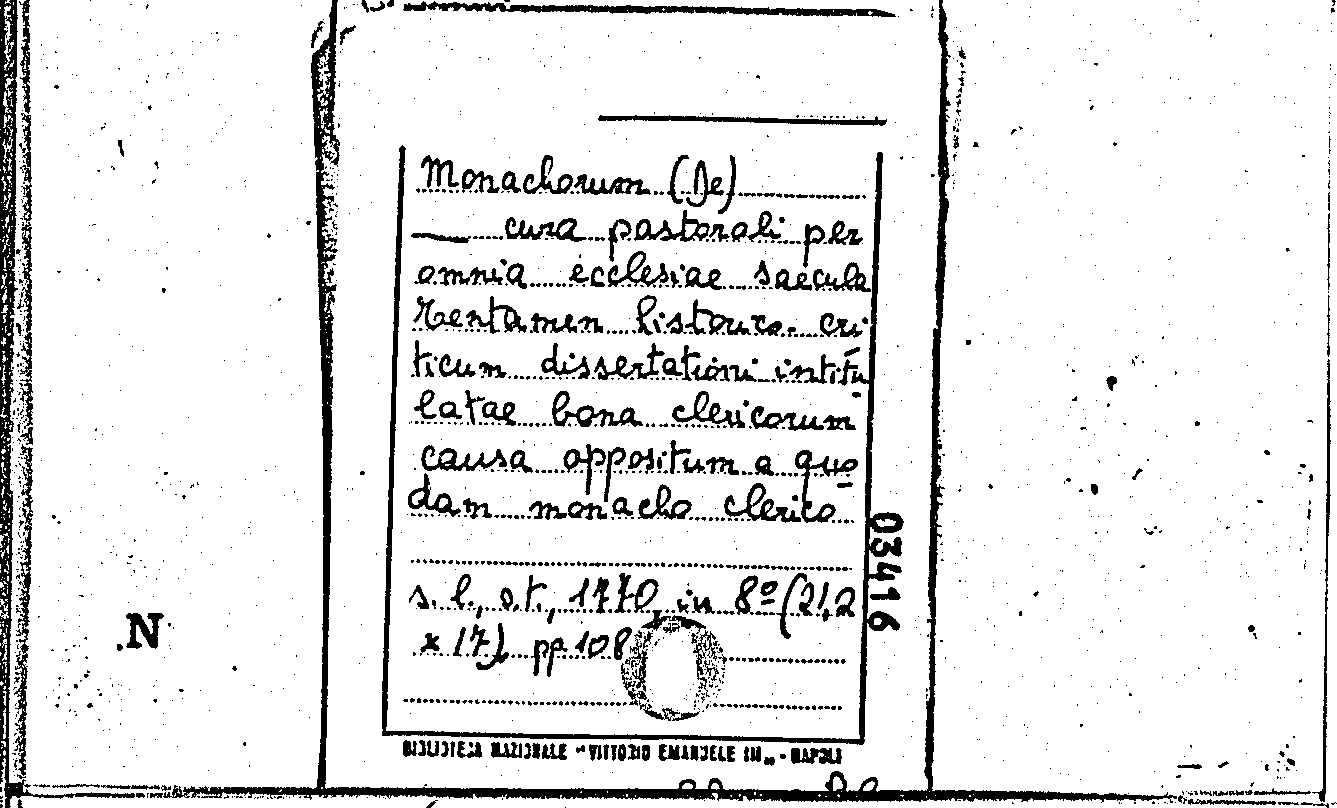 Monachorum (De)
— cura pastorali per
omnia ecclesiae saecula
tentamen historico-cri
ticum dissertationi intitu
latae bona clericorum
causa oppositum a quo
dam monacho clerico
s. l., s.t., 1770, in 8º (21,2
x 17) pp 108
03416
N
BIBLIOTECA NAZIONALE "VITTORIO EMANUELE III" - NAPOLI